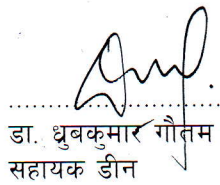 डा. ध्रुबकुमार गौतम
सहायक डीन